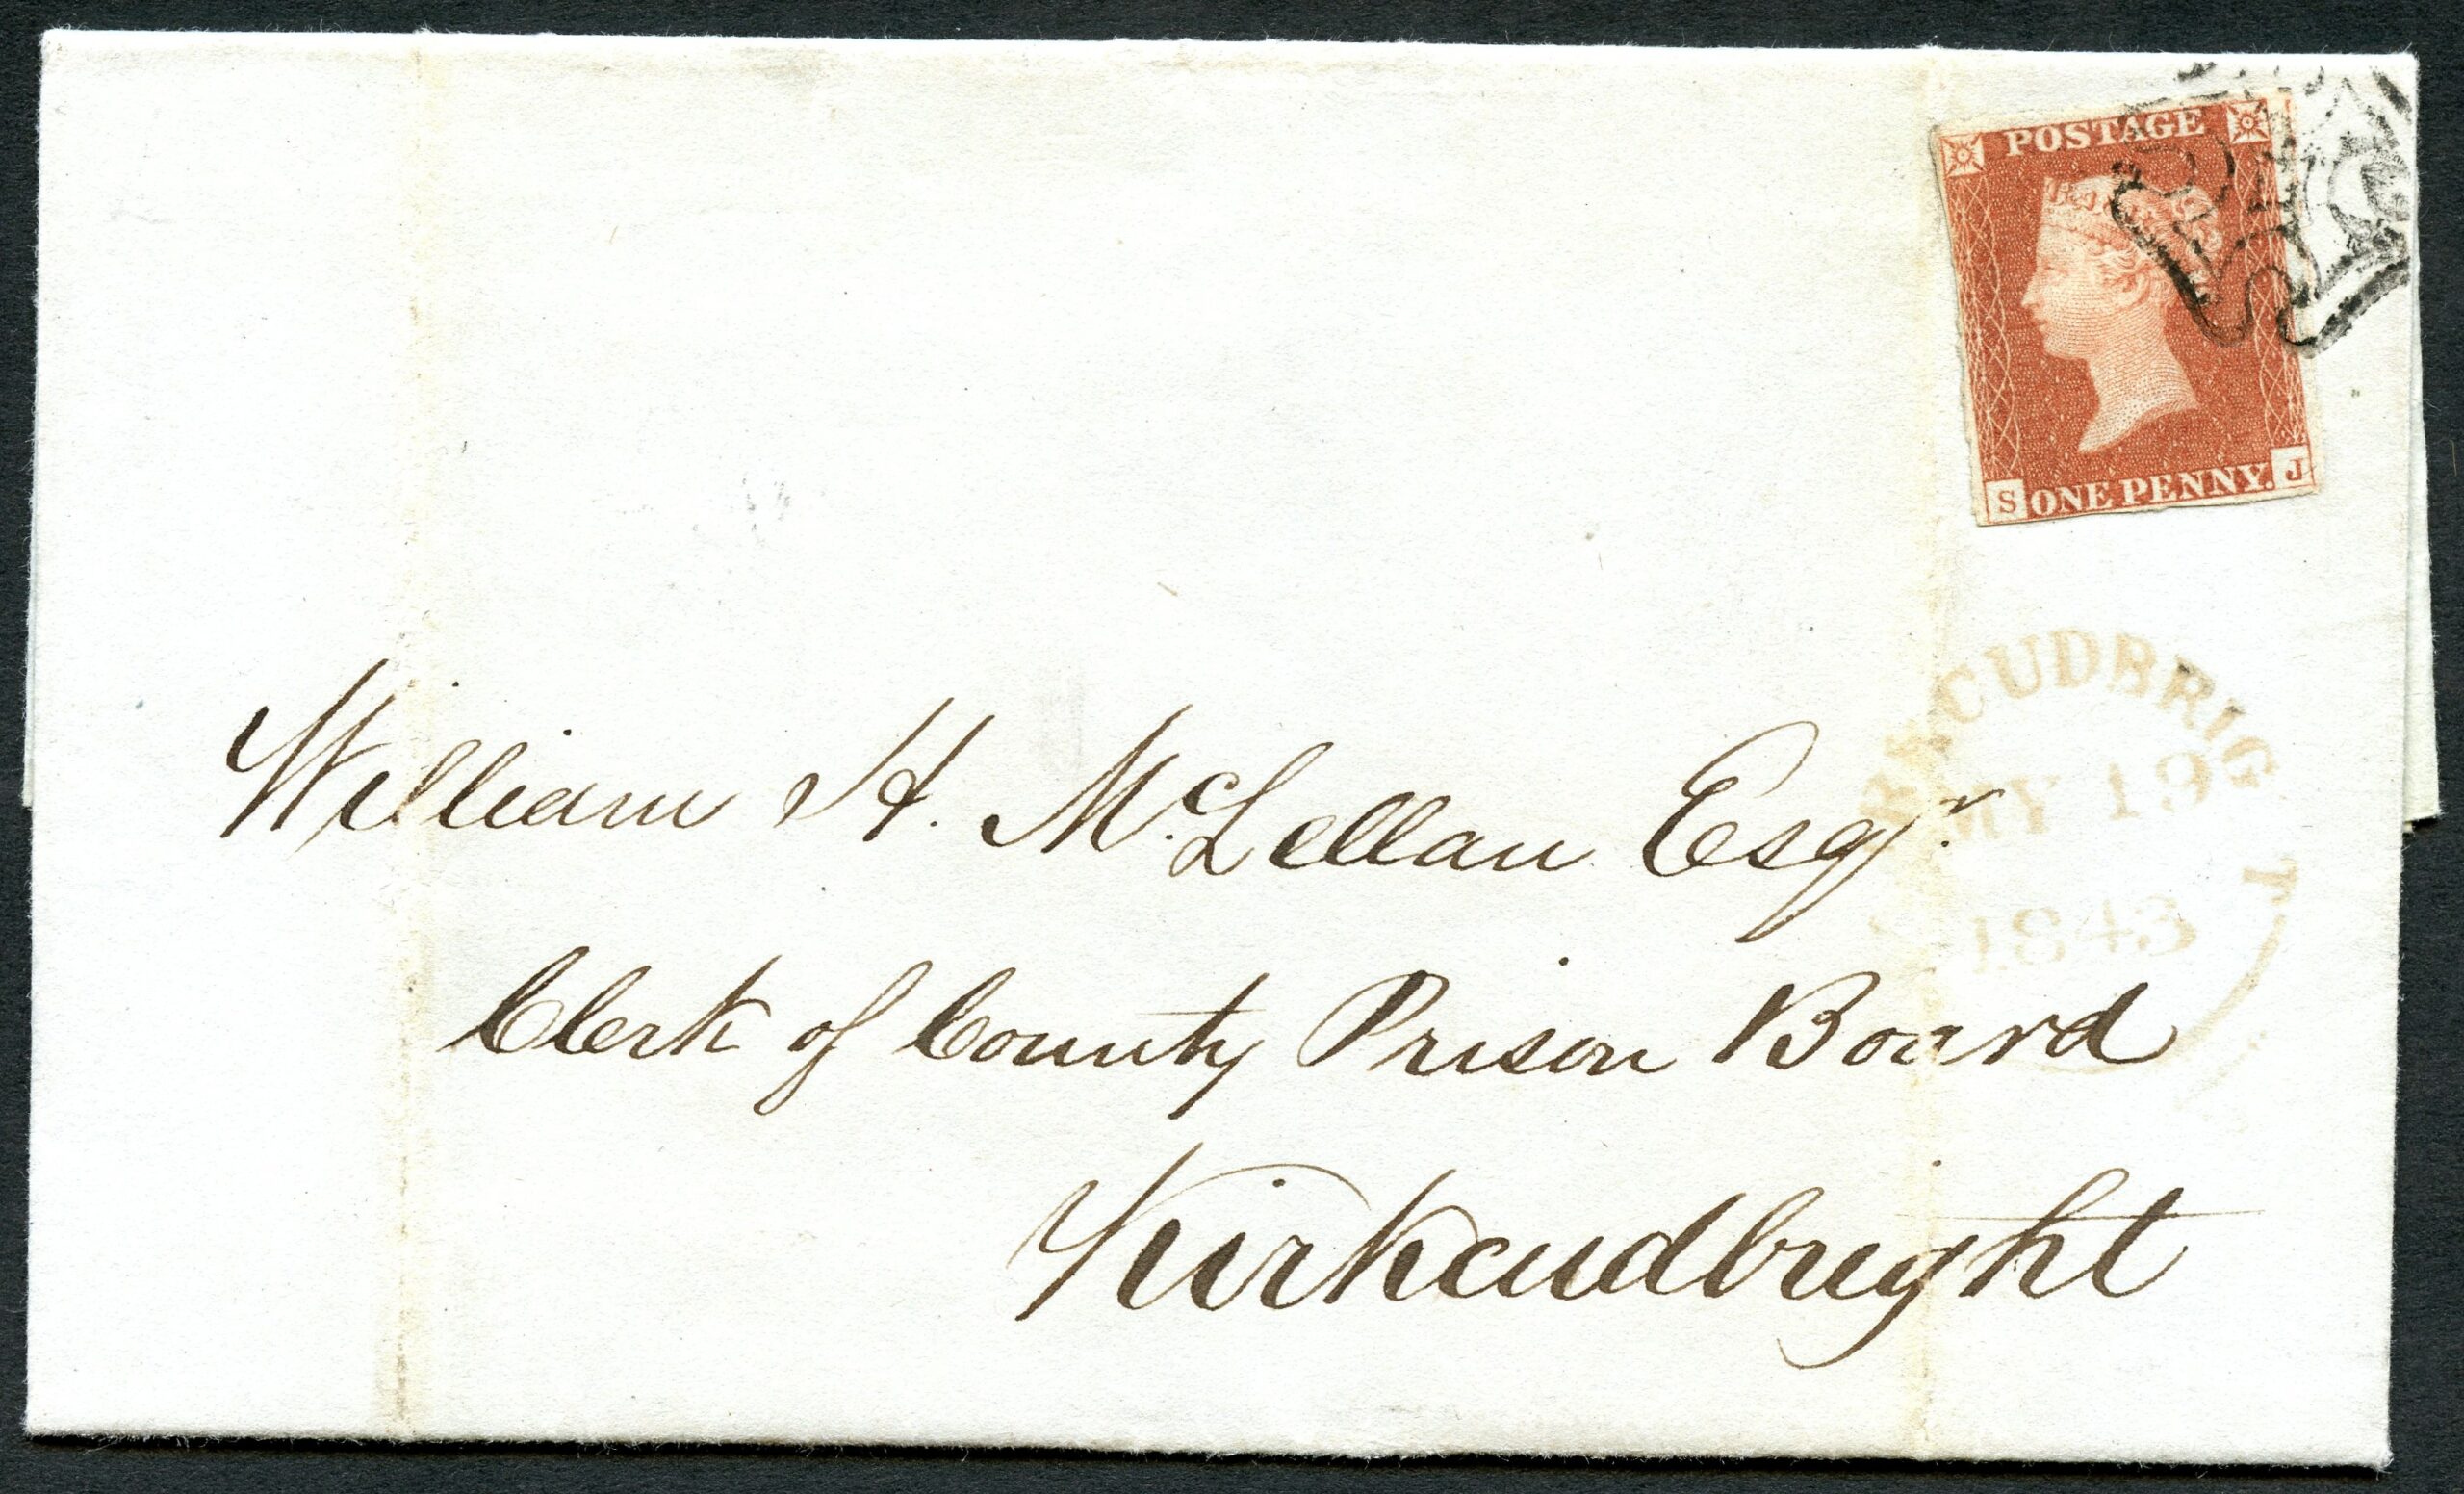 POSTAGE
S ONE PENNY. J
KIRKCUDBRIGHT
MY 19
1843
William H. McLellan Esqr
Clerk of County Prison Board
Kirkcudbright